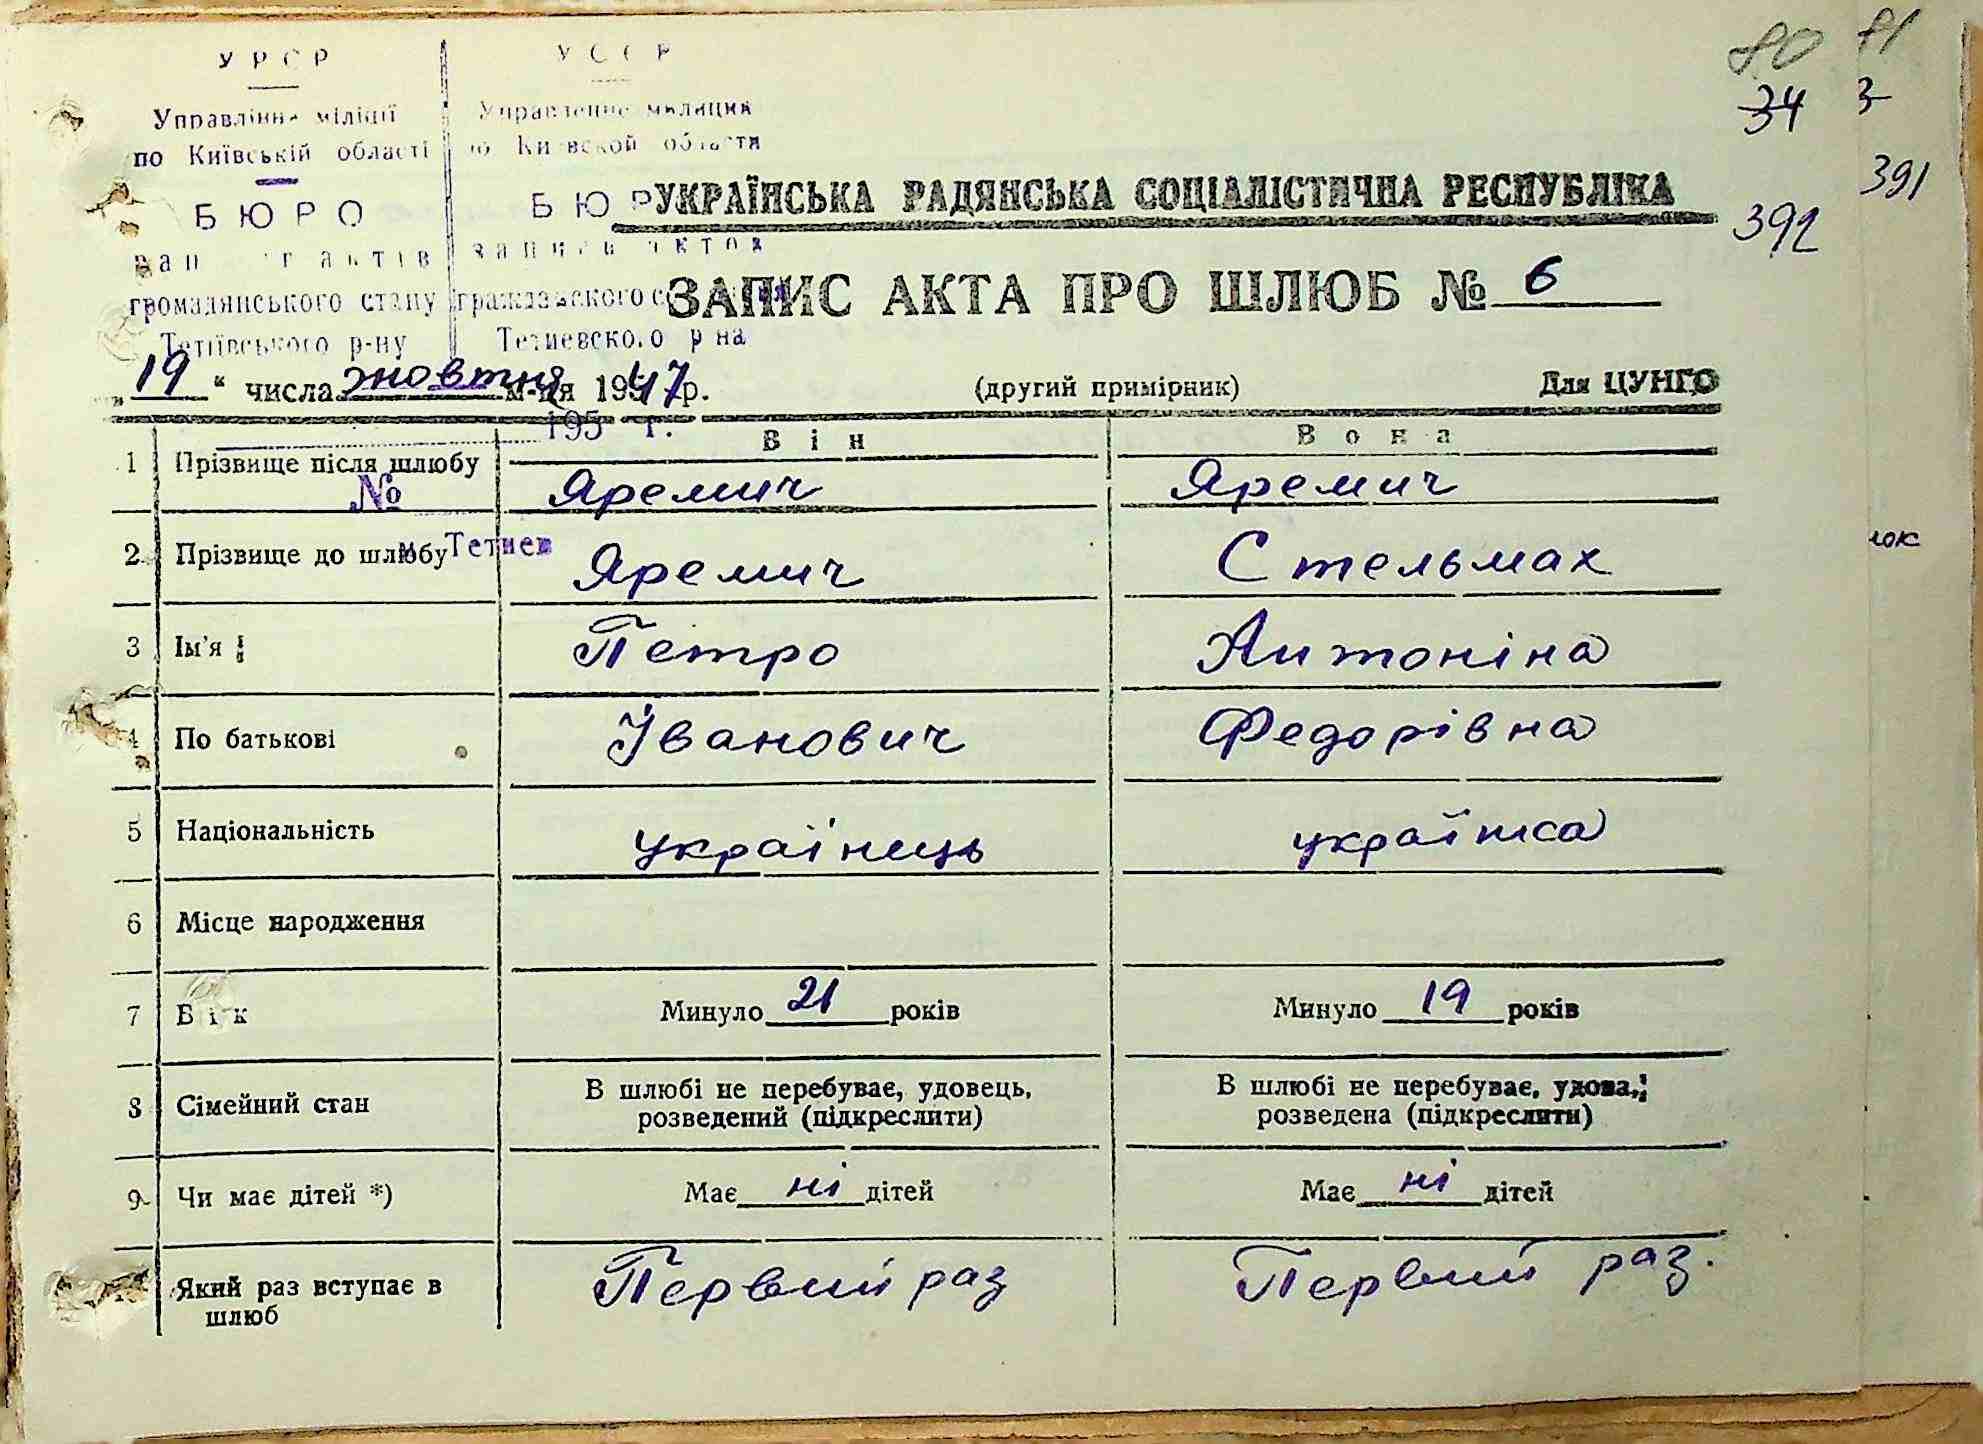 УРСР
Управління міліції
по Київській області
БЮРО
актів
громадянського стану
Тетіївського р-ну
УССР
Управление милиции
по Киевской области
БЮР
записи актов
гражданского
Тетиевского р на
195 г.
№
м. Тетиев
80
34
392
81
3
391
УКРАЇНСЬКА РАДЯНСЬКА СОЦІАЛІСТИЧНА РЕСПУБЛІКА
ЗАПИС АКТА ПРО ШЛЮБ № 6
„19“ числа жовтня м-ця 1947 р. (другий примірник) Для ЦУНГО
Він Вона
1 Прізвище після шлюбу Яремич Яремич
2 Прізвище до шлюбу Яремич Стельмах
3 Ім'я Петро Антоніна
4 По батькові Іванович Федорівна
5 Національність українець українка
6 Місце народження
7 Вік Минуло 21 років Минуло 19 років
8 Сімейний стан В шлюбі не перебуває, удовець, розведений (підкреслити) В шлюбі не перебуває, удова, розведена (підкреслити)
9 Чи має дітей *) Має ні дітей Має ні дітей
Який раз вступає в шлюб Первий раз Первий раз.